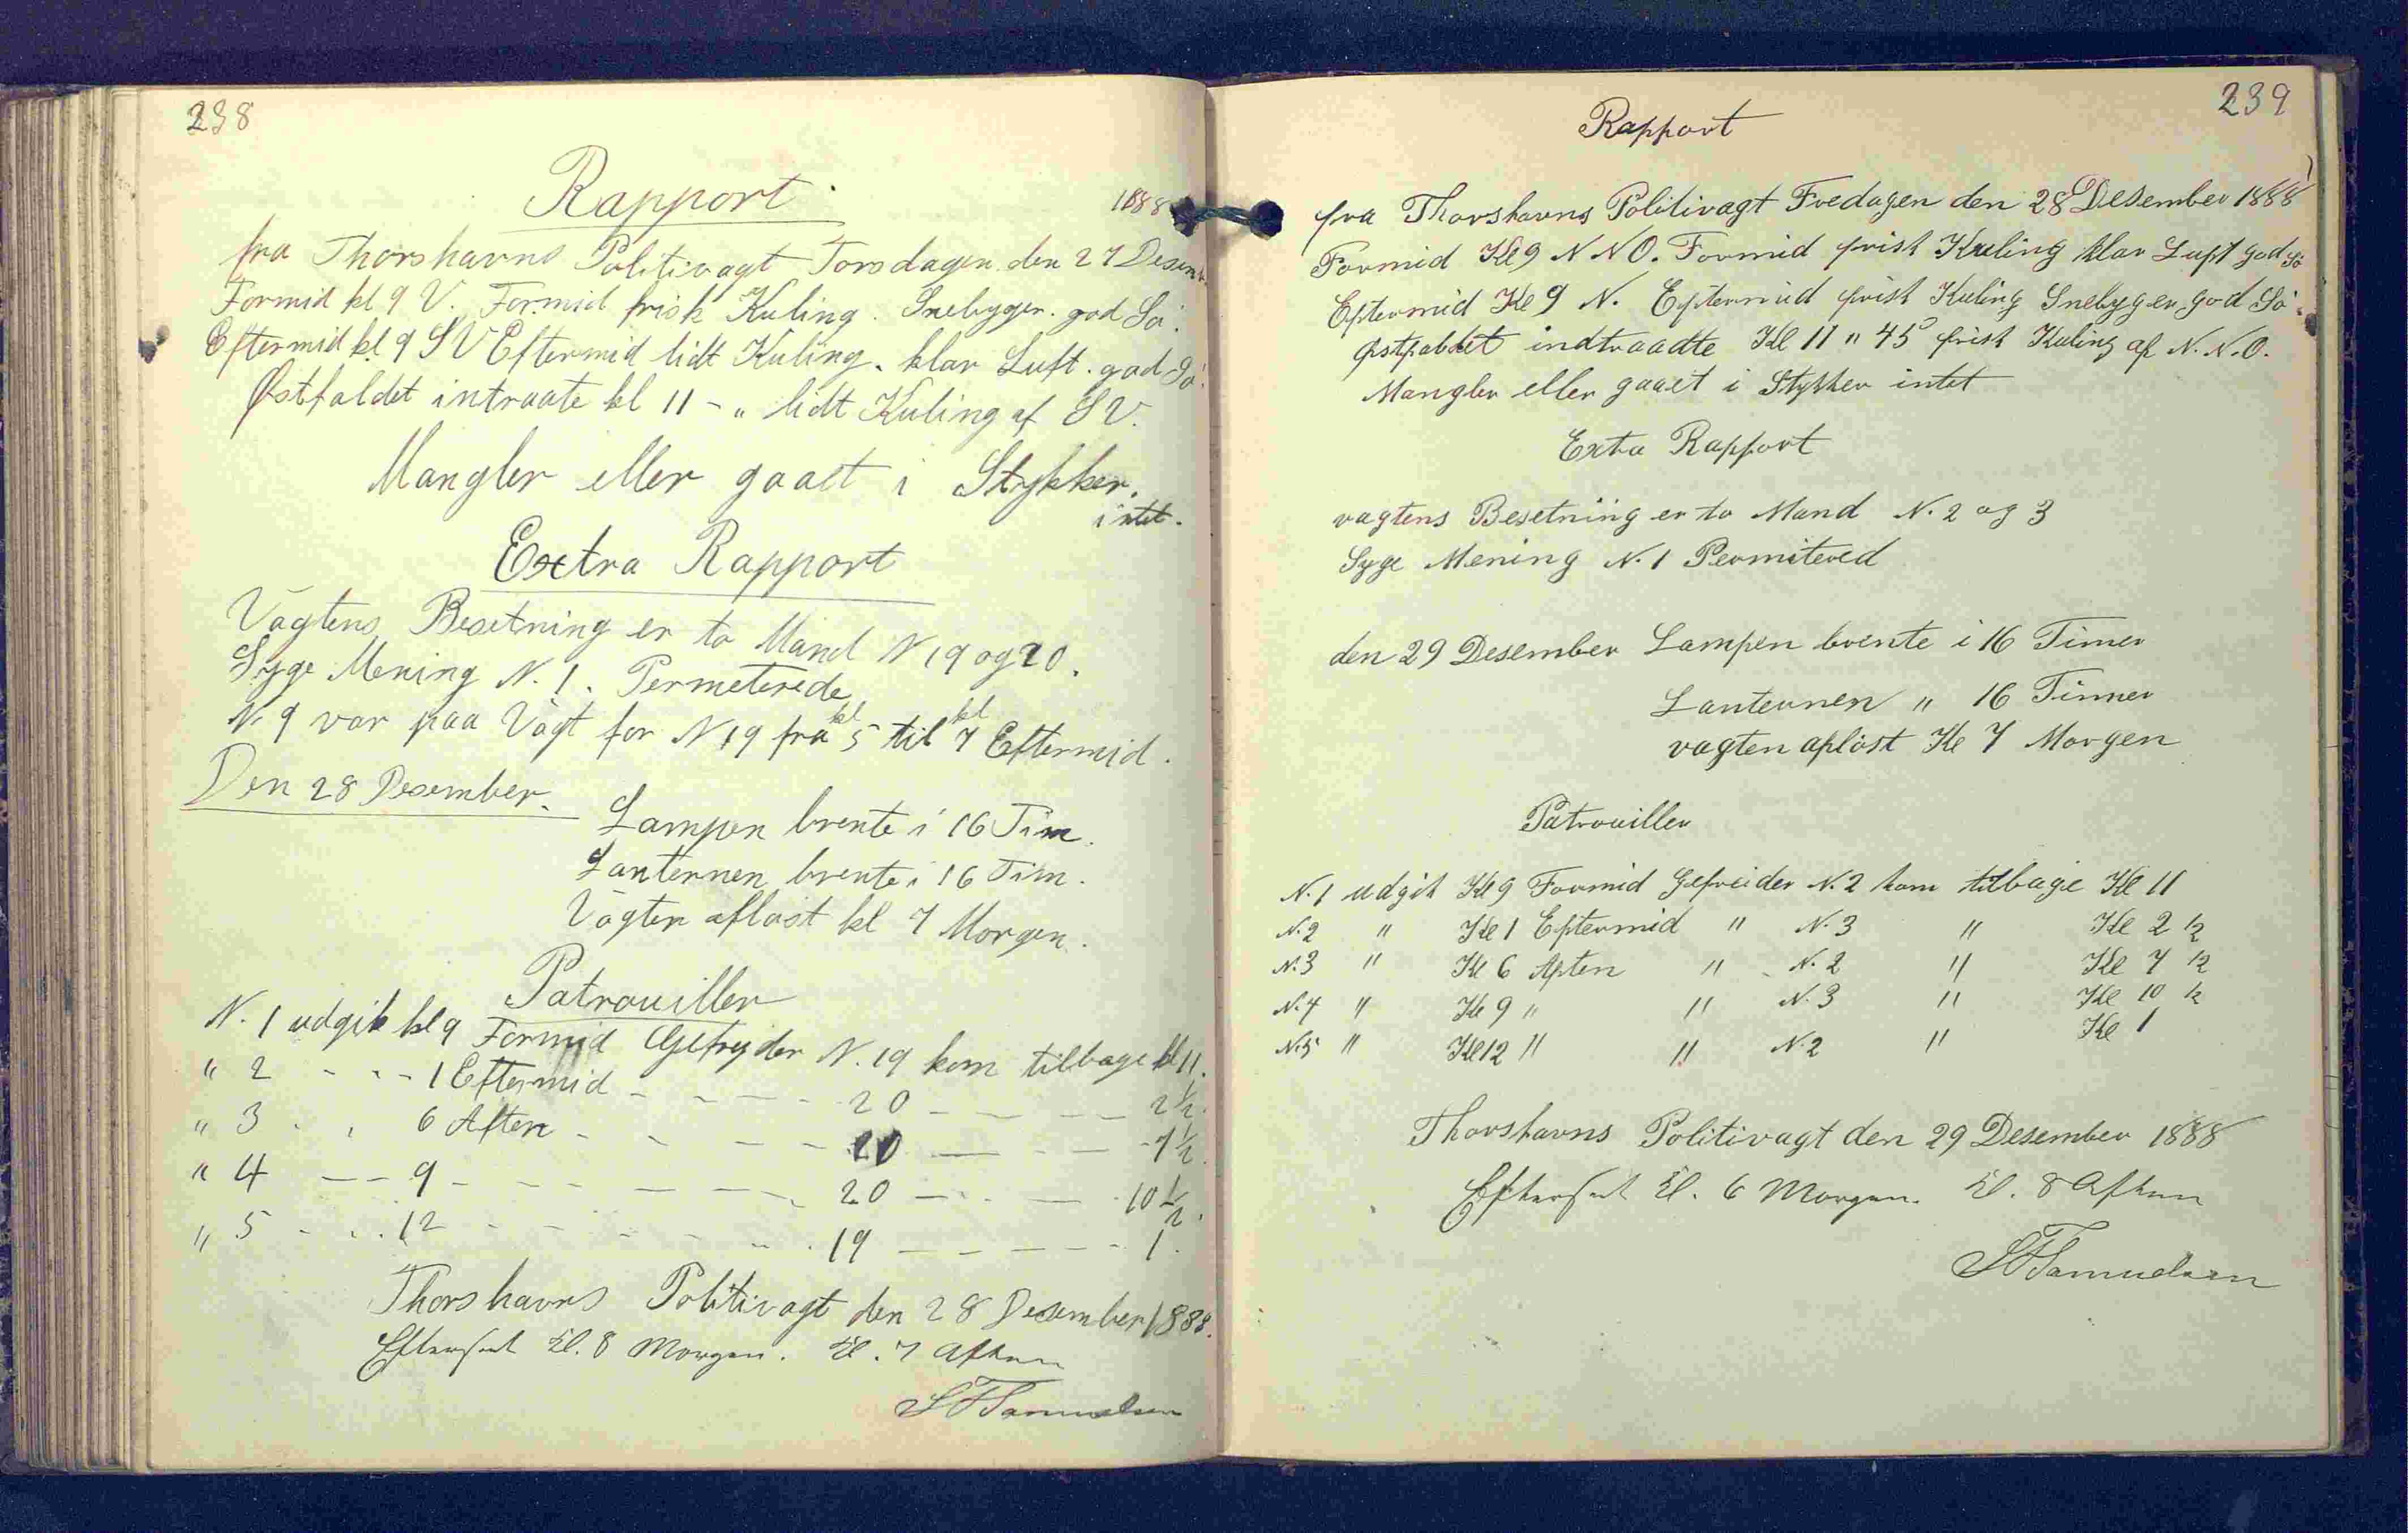 238
Rapport.
1888
fra Thorshavns Politivagt Torsdagen den 27 Desem
Formid kl 9 V. Formid frisk Kuling. Snebygger. god Sö.
Eftermid kl. 9 SV Eftermid lidt Kuling. klar Luft. god Sö.
Østfaldet intraate kl 11 - " lidt Kuling af SV.
Mangler eller gaaet i Stykker.
intet.
Extra Rapport
Vagtens Besetning er to Mand N 19 og 20.
Syge Mening N. 1. Permeterede
N. 9 var paa Vagt for N 19 fra kl 5 til kl 7 Eftermid.
Den 28 Desember.
Lampen brente i 16 Tim.
Lanternen brente i 16 Tim.
Vagten aflöst kl 7 Morgen.
Patrouiller
N. 1 udgik kl 9 Formid Gefrejder N. 19 kom tilbage kl 11.
" 2 - - - 1 Eftermid - - - - 20 - - - - 2 1/2.
" 3 . . 6 Aften - - - - 20 - - - 7 1/2.
" 4 - - 9 - - - - - - 20 - - - 10 1/2.
" 5 - - . 12 - - - - - - 19 - - - - - 1.
Thorshavns Politivagt den 28 Desember 1888.
Efterset Kl. 8 Morgen. Kl. 7 Aften
SFSamuelsen
239
Rapport
fra Thorshavns Politivagt Fredagen den 28 Desember 1888
Formid Kl 9 N N O. Formid frisk Kuling klar Luft god Sö
Eftermid Kl 9 N. Eftermid frisk Kuling Snebyger god Sö.
Østfaldet indtraadte Kl 11 " 45 frisk Kuling af N. N. O.
Mangler eller gaaet i Stykker intet
Exta Rapport
vagtens Besetning er to Mand N. 2 og 3
Syge Mening N. 1 Permitered
den 29 Desember Lampen brente i 16 Timer
Lanternen " 16 Timer
vagten aflöst Kl 7 Morgen
Patrouiller
N. 1 udgik Kl 9 Formid Gefreider N. 2 kom tilbage Kl 11
N. 2 " Kl 1 Eftermid " N. 3 " Kl 2 1/2
N. 3 " Kl 6 Aften " N. 2 " Kl 7 1/2
N. 4 " Kl 9 " " N. 3 " Kl 10 1/2
N. 5 " Kl 12 " " N 2 " Kl 1
Thorshavns Politivagt den 29 Desember 1888
Efterset Kl. 6 Morgen. Kl. 8 Aften
SFSamuelsen